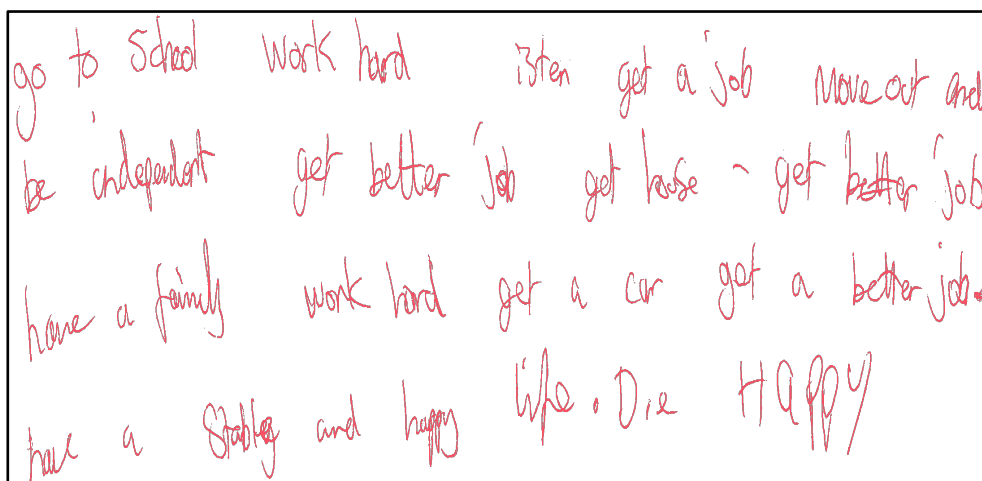 go to School work hard listen get a job move out and
be independent get better job get house - get better job
have a family work hard get a car get a better job.
have a stable and happy life. Die HAPPY